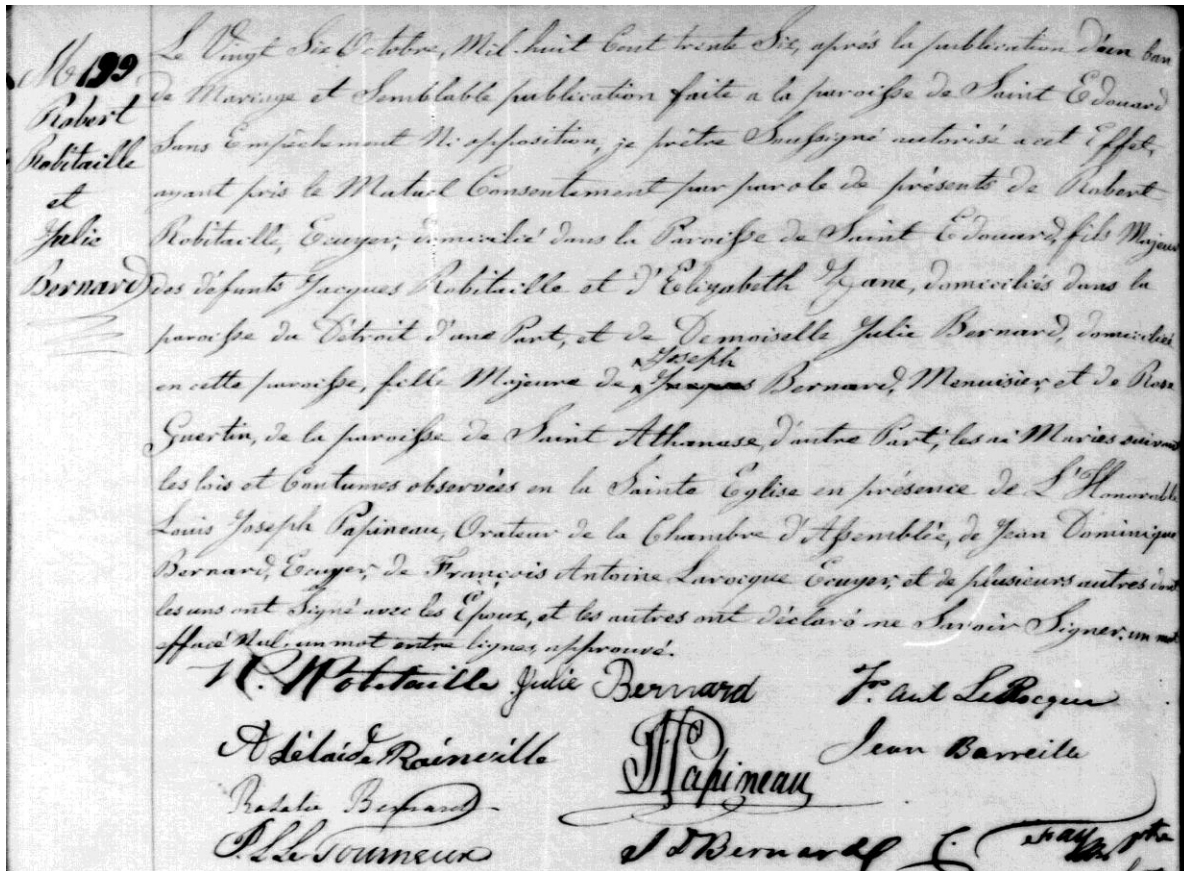 M 199
Robert
Robitaille
et
Julie
Bernard
Le Vingt Six Octobre, Mil huit Cent trente Six, après la publication d'un ban
de Mariage et Semblable publication faite a la paroisse de Saint Edouard
Sans Empêchement Ni opposition, je prêtre Soussigné autorisé a cet Effet,
ayant pris le Mutuel Consentement par parole de présents de Robert
Robitaille, Ecuyer, domicilié dans la Paroisse de Saint Edouard, fils Majeur
des défunts Jacques Robitaille et d'Elizabeth Zane, domiciliés dans la
paroisse du Détroit d'une Part, et de Demoiselle Julie Bernard, domiciliée
Joseph
en cette paroisse, fille Majeure de Jacques Bernard, Menuisier, et de Rose
Guertin, de la paroisse de Saint Athanase, d'autre Part; les ai Mariés suivant
les lois et Coutumes observées en la Sainte Eglise en présence de L'Honorable
Louis Joseph Papineau, Orateur de la Chambre d'Assemblée, de Jean Dominique
Bernard, Ecuyer, de François Antoine Larocque Ecuyer, et de plusieurs autres dont
les uns ont Signé avec les Epoux, et les autres ont déclaré ne Savoir Signer, un mot
effacé Nul, un mot entre lignes, approuvé.
R. Robitaille Julie Bernard Fr. Ant LaRocque
Adélaide Rainville LJ Papineau Jean Barreille
Rosalie Bernard
P. L. Le Tourneux J D Bernard C. ptre